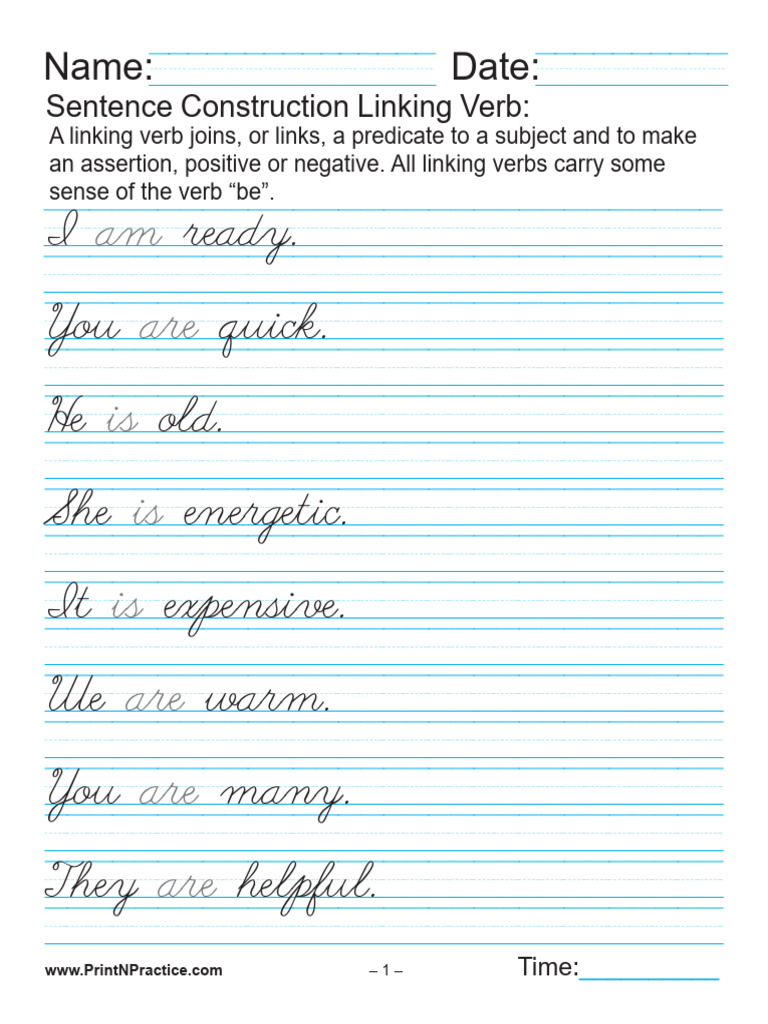 Name: Date:
Sentence Construction Linking Verb:
A linking verb joins, or links, a predicate to a subject and to make
an assertion, positive or negative. All linking verbs carry some
sense of the verb “be”.
I am ready.
You are quick.
He is old.
She is energetic.
It is expensive.
We are warm.
You are many.
They are helpful.
www.PrintNPractice.com – 1 – Time: